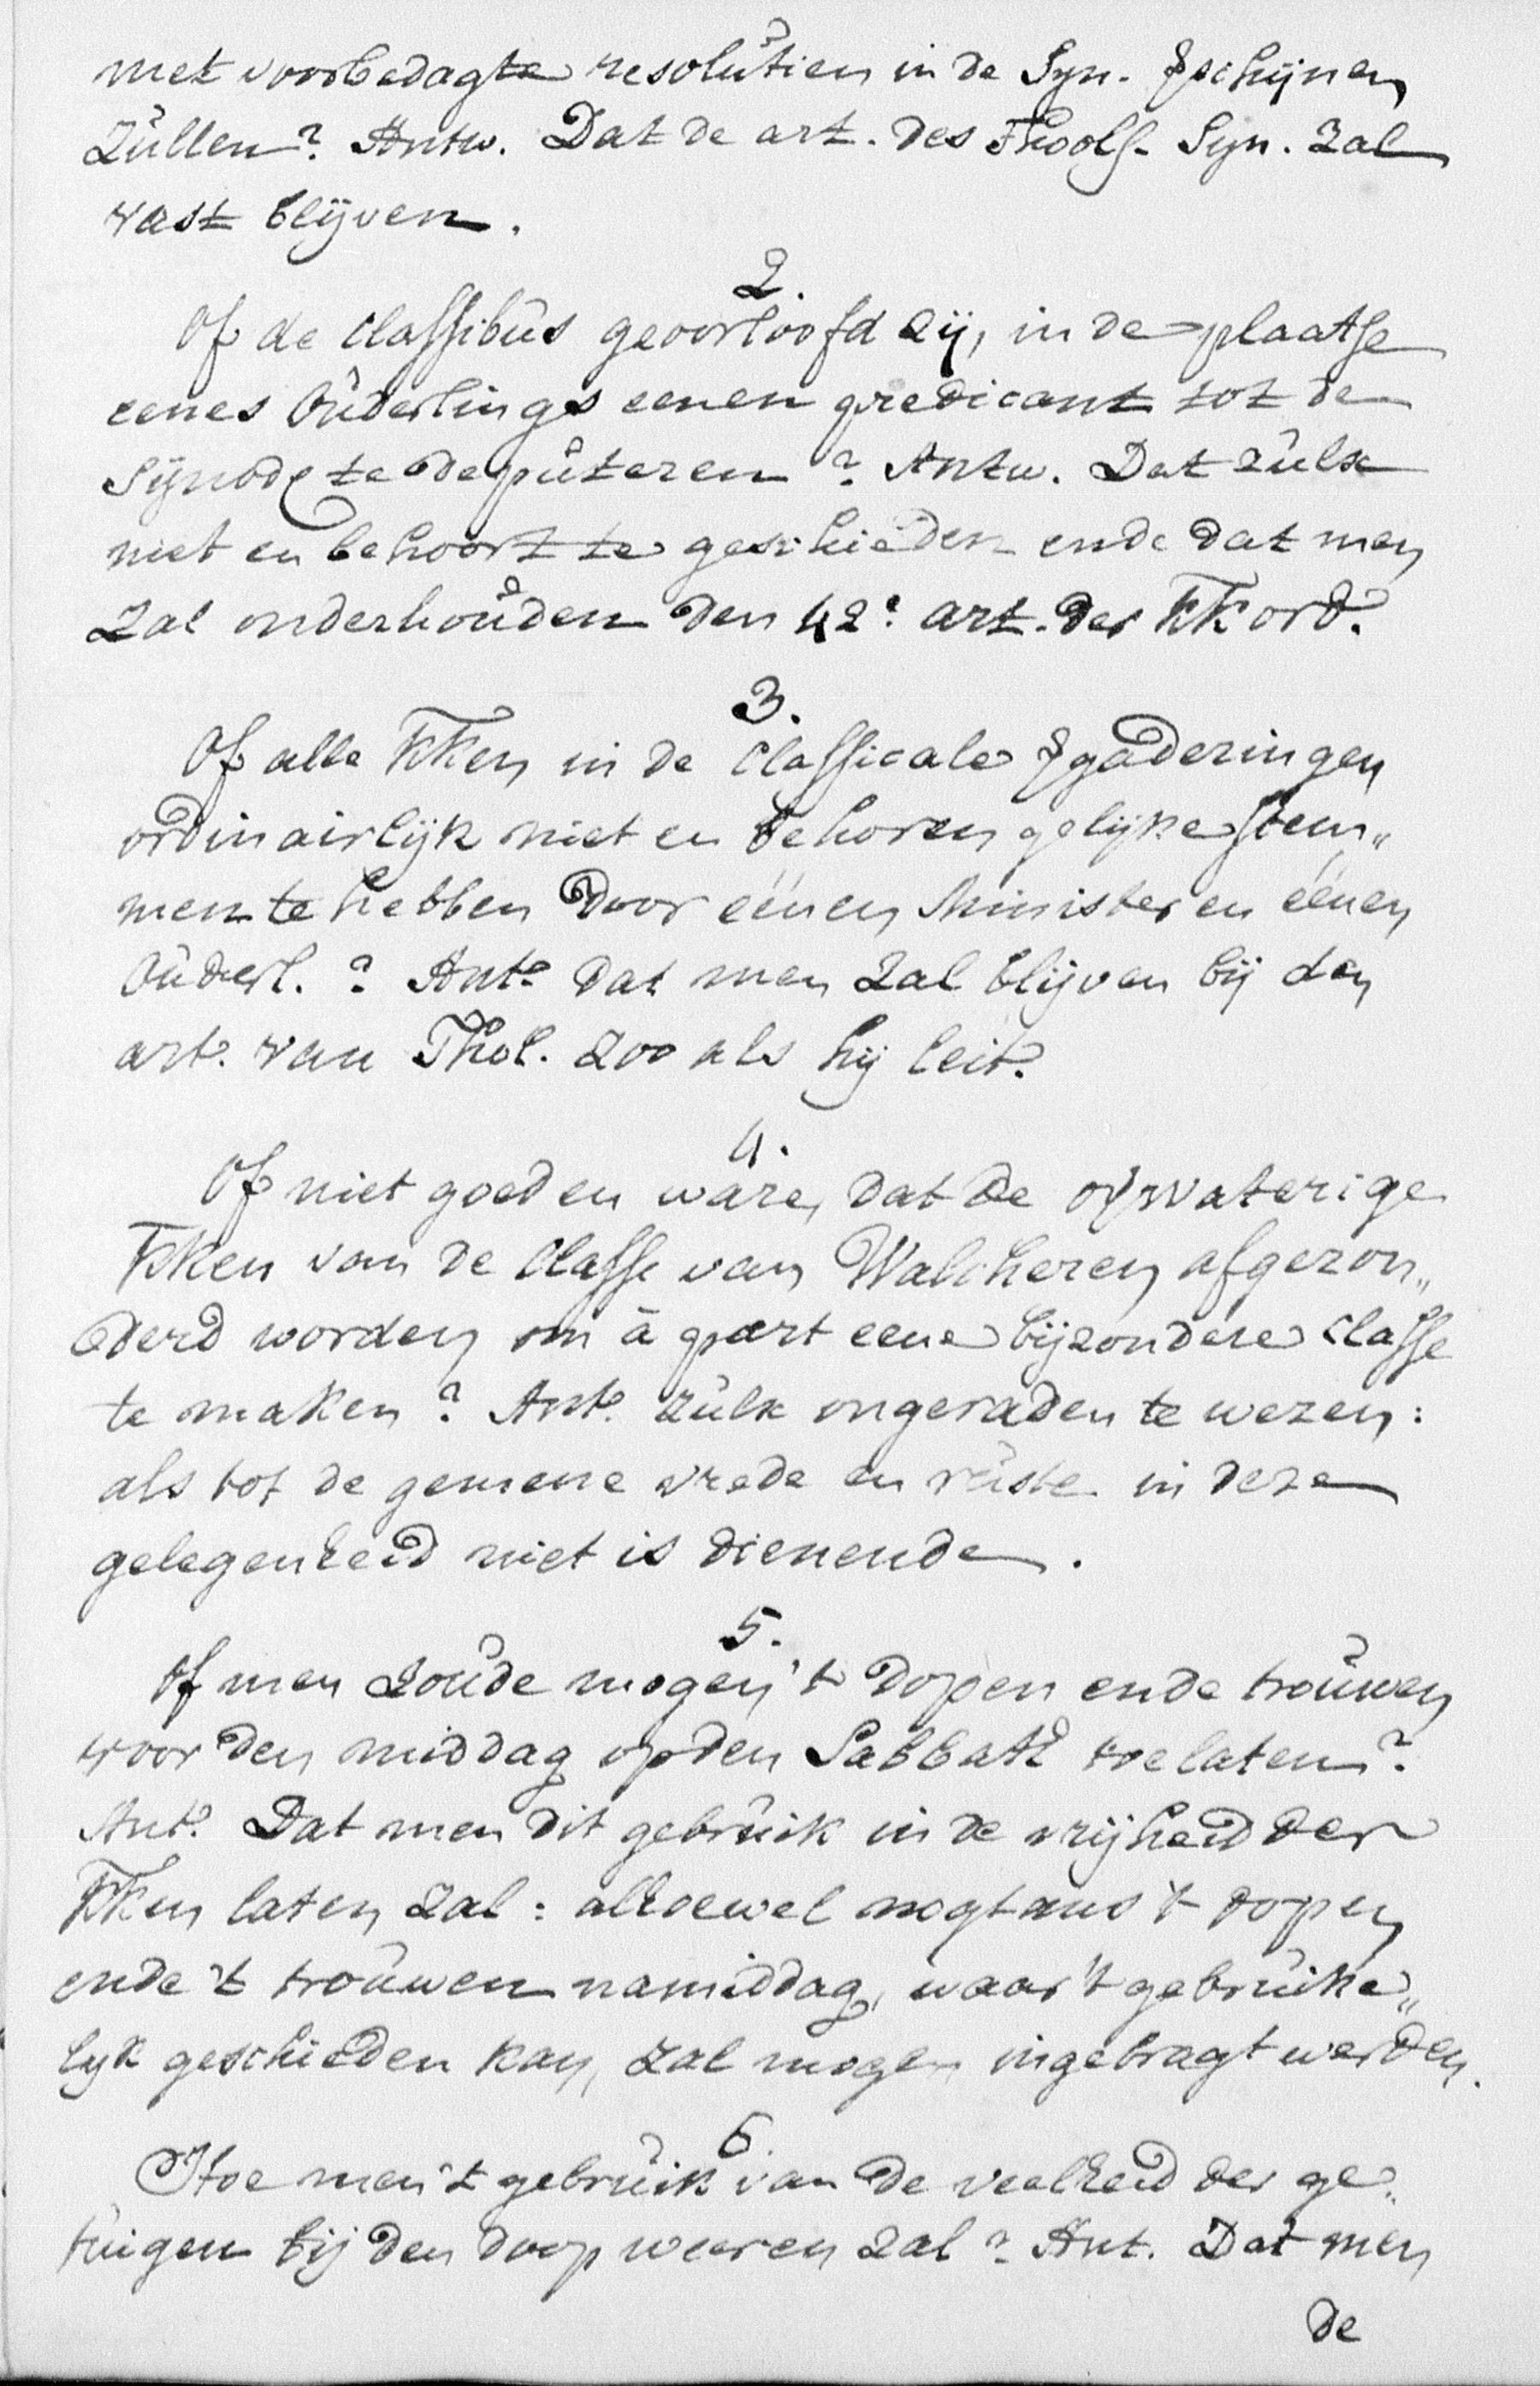 met voorbedagte resolutien in de Syn. vschijnen
zullen? Antw. Dat de art. des Thools. Syn. zal
vast blijven.
2.
Of de Classibus geoorloofd zij, in de plaatse
eenes Ouderlings eenen predicant tot de
Synode te deputeren? Antw. Dat zulx
niet en behoort te geschieden ende dat men
zal onderhouden den 42e art. der KKord.
3.
Of alle KKen in de Classicale vgaderingen
ordinairlijk niet en behoren gelijke stem„
men te hebben door éénen Minister en éénen
Ouderl.? Antw. dat men zal blijven bij den
art. van Thol. zoo als hij leit.
4.
Of niet goed en ware, dat de opwaterige
KKen van de Classe van Walcheren afgezon„
derd worden om à part eene bijzondere Classe
te maken? Ant. zulx ongeraden te wezen:
als tot de gemene vrede en ruste in deze
gelegenheid niet is dienende.
5.
Of men zoude mogen 't dopen ende trouwen
voor den middag op den Sabbath toelaten?
Ant. Dat men dit gebruik in de vrijheid der
KKen laten zal: alhoewel nogtans 't dopen
ende 't trouwen namiddag, waar 't gebruike„
lyk geschieden kan, zal mogen ingebragt werden.
6.
Hoe men 't gebruik van de veelheid der ge„
tuigen bij den doop weeren zal? Ant. Dat men
de